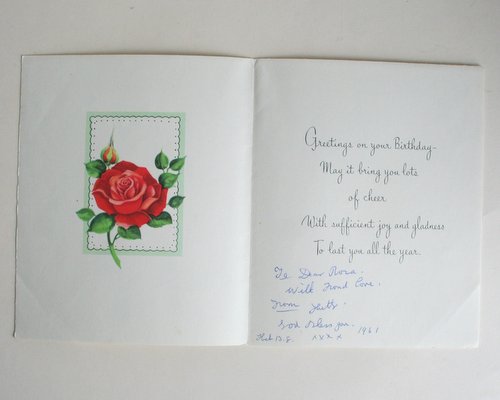 Greetings on your Birthday-
May it bring you lots
of cheer
With sufficient joy and gladness
To last you all the year.
To Dear Rosa.
With Fond Love.
From
God Bless you.
xxxx 1961